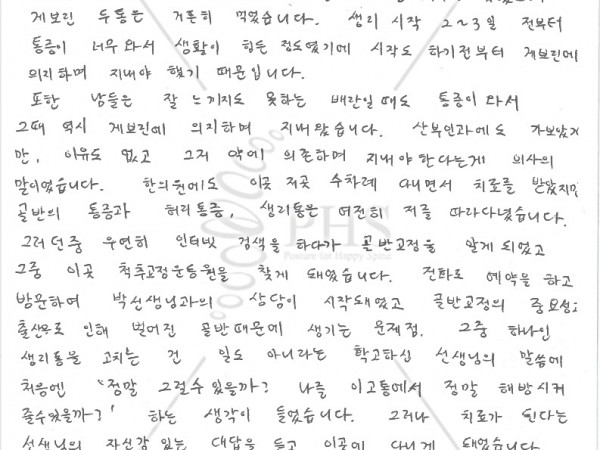 게보린 두통은 거뜬히 먹었습니다. 생리 시작 2~3일 전부터
통증이 너무 와서 생활이 힘든 정도였기에 시작도 하기전부터 게보린에
의지하며 지내야 했기 때문입니다.
또한 남들은 잘 느끼지도 못하는 배란일 때도 통증이 와서
그때 역시 게보린에 의지하며 지내왔습니다. 산부인과에도 가보았지
만, 이유도 없고 그저 약에 의존하며 지내야한다는게 의사의
말이었습니다. 한의원에도 이곳 저곳 수차례 다니면서 치료를 받았지만
골반의 통증과 허리통증, 생리통은 여전히 저를 따라다녔습니다.
그러던중 우연히 인터넷 검색을 하다가 골반교정을 알게 되었고
그중 이곳 척추교정운동원을 찾게 돼었습니다. 전화로 예약을 하고
방문하여 박선생님과의 상담이 시작돼었고 골반교정의 중요성과
출산으로 인해 벌어진 골반때문에 생기는 문제점. 그중 하나인
생리통을 고치는 건 일도 아니라는 확고하신 선생님의 말씀에
처음엔 "정말 그럴수있을까? 나를 이고통에서 정말 해방시켜
줄수있을까?" 하는 생각이 들었습니다. 그러나 치료가 된다는
선생님의 자신감 있는 대답을 듣고 이곳에 다니게 돼었습니다.
PHS
Posture for Happy Spine